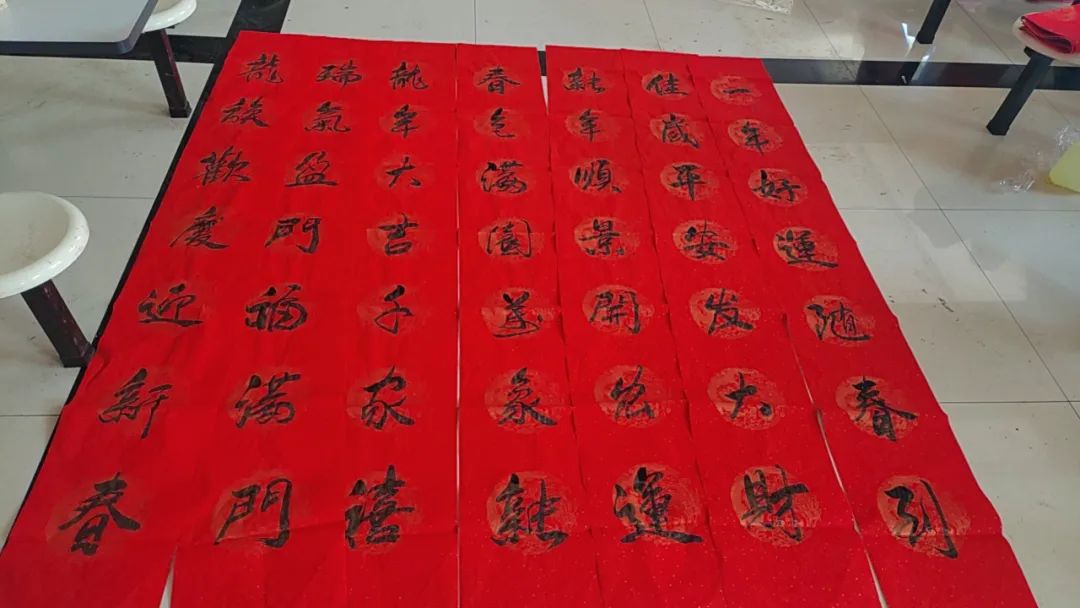 一年好運随春引
佳歲平安发大財
新年順景開宏運
春色滿園萬象新
龍年大吉千家禧
瑞氣盈門福滿門
龍族歡慶迎新春